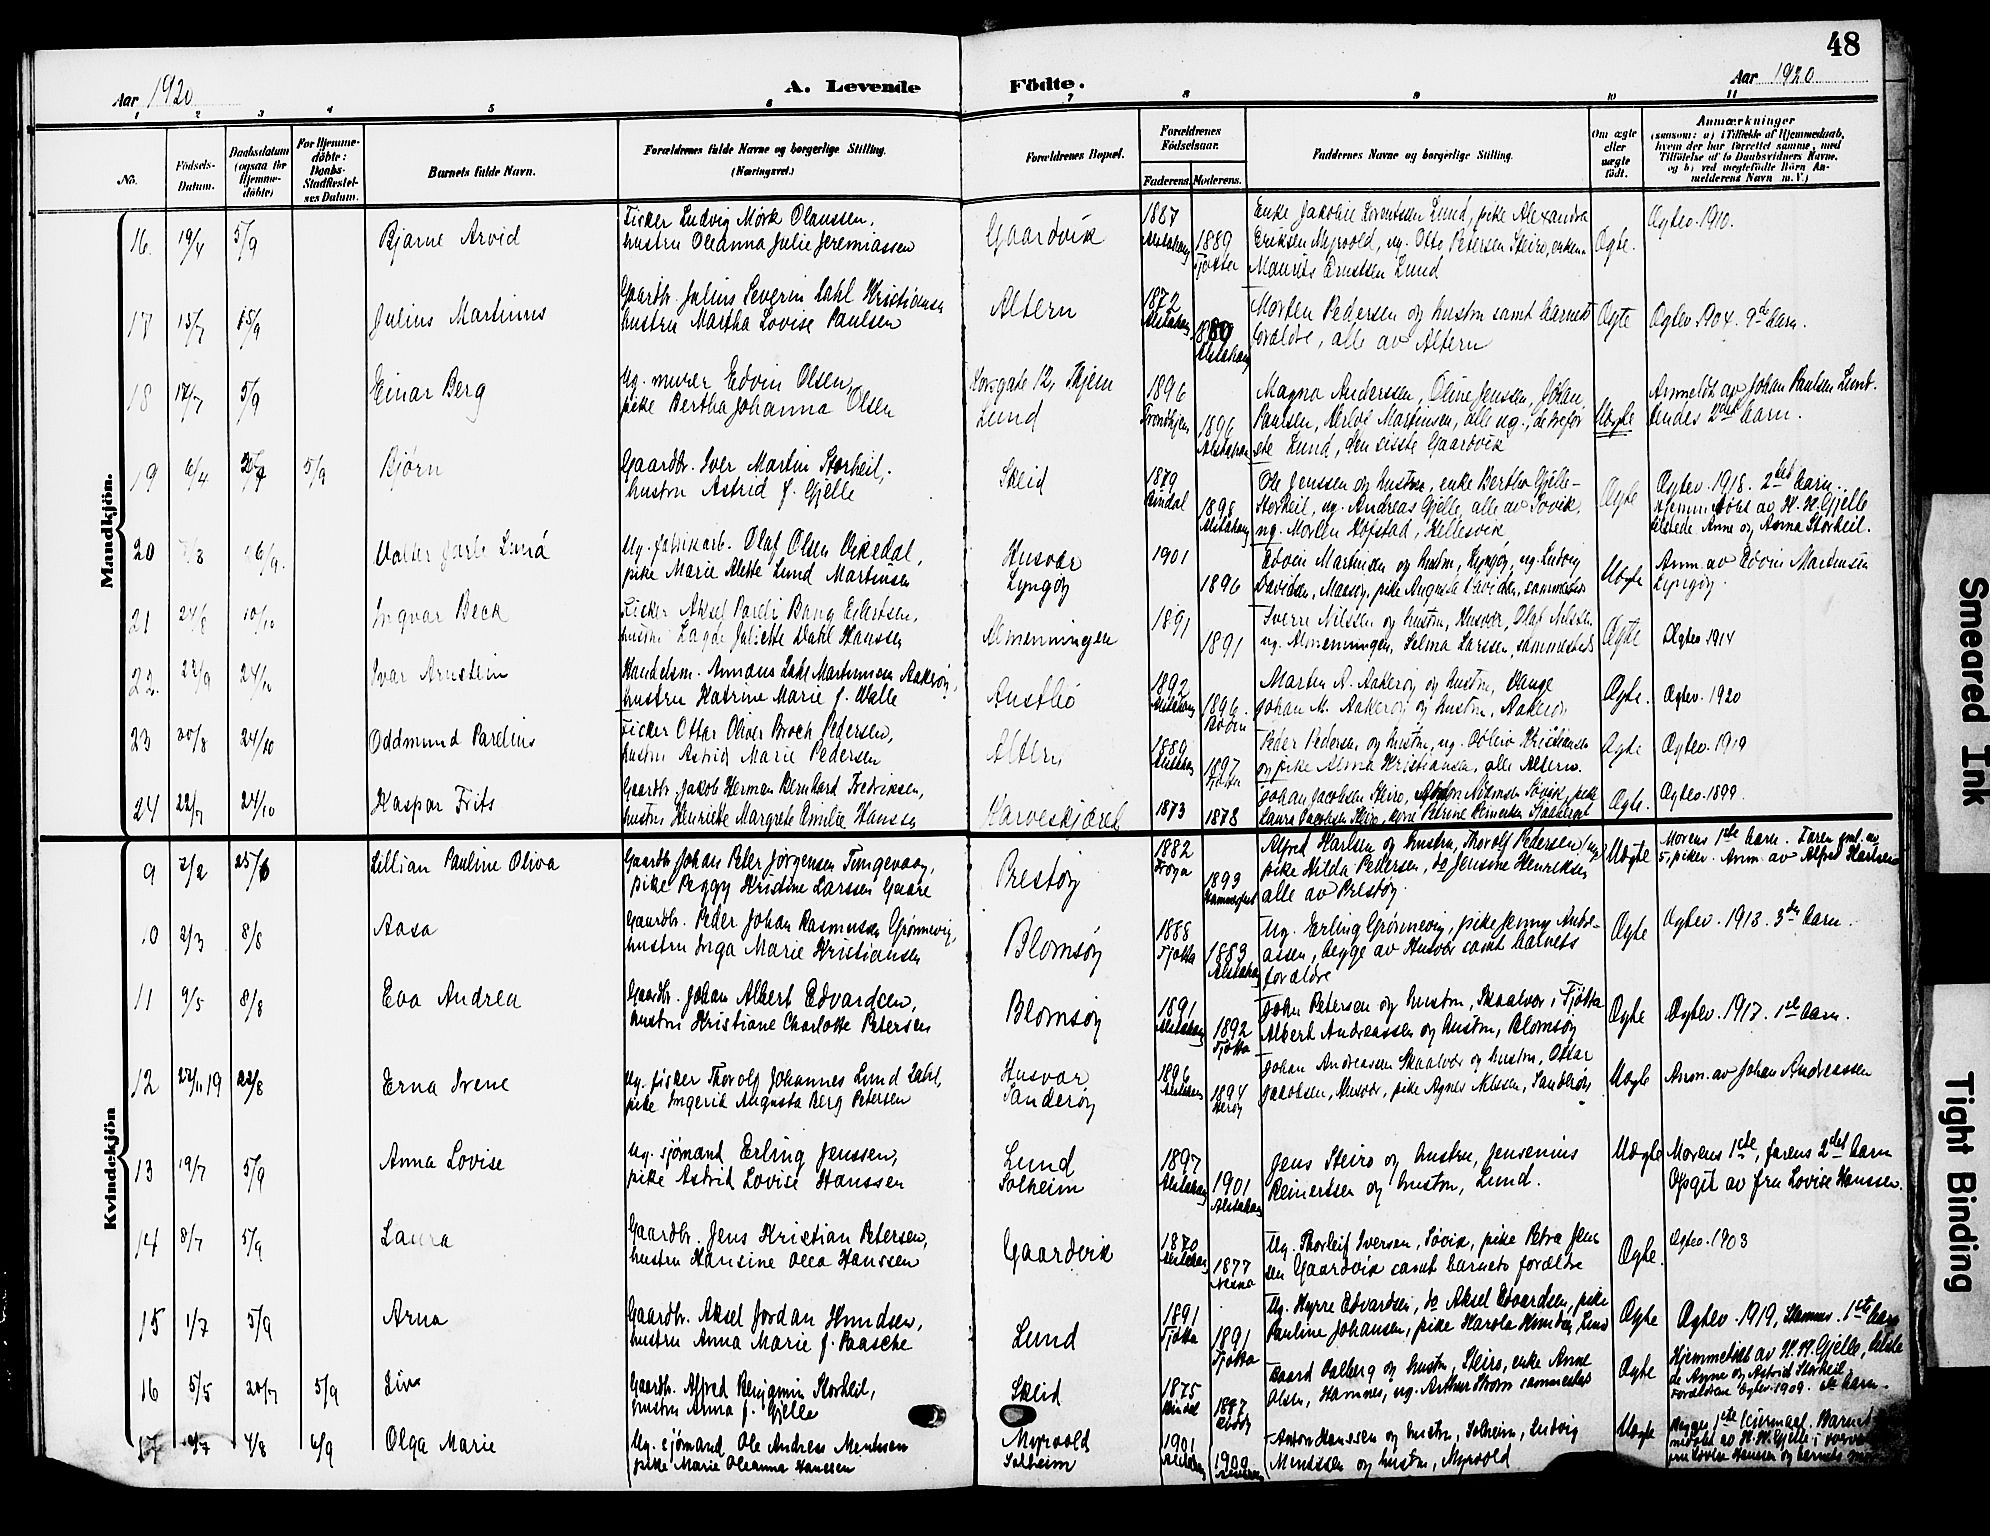 48
Aar 1920
A. Levende Födte.
Aar 1920
1 2 3 4 5 6 7 8 9 10 11
No.
Födsels-
Datum.
Daabsdatum
(ogsaa for
Hjemme-
döbte)
For Hjemme-
döbte:
Daabs-
Stadfæstel-
ses Datum.
Barnets fulde Navn.
Forældrenes fulde Navne og borgerlige Stilling.
(Næringsvei.)
Forældrenes Bopæl.
Forældrenes
Fødselsaar.
Faderens. Moderens.
Faddernes Navne og borgerlige Stilling.
Om ægte
eller
uægte
født.
Anmærkninger
(saasom: a) i Tilfælde af Hjemmedaab,
hvem der har forrettet samme, med
Tilföielse af to Daabsvidners Navne,
og b) ved uægtefödte Börn An-
melderens Navn m. V.)
Mandkjön.
16. 19/4 5/9 Bjarne Arvid
Fisker Ludvig Mörk Olaussen,
hustru Oleanna Julie Jeremiassen
Gaardvik
1887 Alstahaug 1889 Tjøtta
Enke Jakobine Lorentsen Lund, pike Alexandra
Eriksen Myrvold, ug. Otto Petersen Steiro, enkem.
Maurits Arntsen Lund
Ægte.
Ægtev. 1910.
17 15/7 15/9 Julius Martinus
Gaardbr. Julius Severin Dahl Kristiansen
hustru Martha Lovise Paulsen
Altern
1872 Alstahaug 1880 Alstahaug
Morten Pedersen og hustru samt barnets
forældre, alle av Altern
Ægte
Ægtev. 1904. 9de barn.
18 17/7 5/9 Einar Berg
Ug. murer Edvin Olsen,
pike Bertha Johanna Olsen
12, Thjem
Lund
1896 Trondhjem 1896 Alstahaug
Magna Anderssen, Oline Jensen, Johan
Paulsen, Herlov Martinsen, alle ug., de tre før
ste Lund, den siste Gaardvik
Uægte
Anmeldt av Johan Paulsen Lund.
Hendes 2det barn.
19 6/4 5/9 Björn
Gaardbr. Iver Martin Storheil,
hustru Astrid f. Gjelle
Skeid
1879 Bindal 1898 Alstahaug
Ole Jenssen og hustru, enke Bertha Gjelle-
Storheil, ug. Andreas Gjelle, alle av Søvik,
ug. Morten Hofstad, Hellesvik
Ægte
Ægtev. 1918. 2det barn.
Hjemmedöbt av H. H. Gjelle
Anne og Anna Storheil.
20 6/9. Lund
Ug. fabrikarb. Olaf Olsen
pike Marie Alette Lund Martinsen
Husvær
Lyngöy
1901 1896
Edvin Martinsen og hustru, Lyngöy, ug. Ludvig
Davidsen, pike Augusta Davidsen, sammesteds
Uægte
Anm. av Edvin Martinsen
Lyngöy.
21 24/8 10/10 Ingvar Beck
Fisker Aksel Pareli Bang Eilertsen,
hustru Juliette Dahl Hanssen
Almenningen
1891 1891
Sverre Nilssen og hustru, Husvær, Olaf Nilssen
ug. Almenningen, Selma Larssen, sammesteds
Ægte
Ægtev. 1914
22. 22/9 24/10 Ivar Arnstein
Handelsm. Annæus Dahl Martinussen Aakeröy,
hustru Katrine Marie f. Walle
Austbö
1892 Alstahaug 1896
Martin A. Aakeröy og hustru,
Johan M. Aakeröy og hustru, Aakeröy
Ægte.
Ægtev. 1920
23 20/8 24/10 Oddmund Parelius
Fisker Ottar Oliver Broch Pedersen,
hustru Astrid Marie Pedersen
Altern
1889 Alstahaug 1897 Tjøtta
Peder Pedersen og hustru, ug. Kristiansen
og pike Alma Kristiansen, alle Altern.
Ægte
Ægtev. 1919
24 22/7 24/10 Kaspar Frits
Gaardbr. Jakob Herman Bernhard Fredriksen,
hustru Henriette Margrete Emilie Hansen
Karveskjæret
1873 1878
Johan Jacobsen Steiro, Søvik, pike
Laura Jacobsen Steiro, Petrine
Ægte.
Ægtev. 1899.
Kvindekjön
9 7/2 25/6 Lillian Pauline Oliva
Gaardbr. Johan Peter Jørgensen Tungevaag,
pike Peggy Kristine Larssen Gaare
Prestöy
1882 Frøya 1893 Hammerfest
Alfred Karlsen og hustru, Thorolf Pedersen, ug.
pike Hilda Pedersen, do Jensine Henriksen
alle av Prestöy.
Uægte
Morens 1ste barn.
5 piker. Anm. av Alfred Karlsen
10 2/3 8/8 Aasa
Gaardbr. Peder Johan Rasmussen Grønnevig,
hustru Inga Marie Kristiansen
Blomsöy
1888 Tjøtta 1883 Alstahaug
Ug. Erling Grønnevig, pike Jenny Andre-
assen, begge av Husvær samt barnets
forældre
Ægte
Ægtev. 1913. 3die barn.
11 9/5 8/8 Eva Andrea
Gaardbr. Johan Albert Edvardsen,
hustru Kristiane Charlotte Petersen
Blomsöy
1891 Alstahaug 1892 Tjøtta
Johan Petersen og hustru, Skaalvær i Tjøtta
Albert Andreassen og hustru, Blomsöy
Ægte
Ægtev. 1917. 1ste barn.
12 27/11 19 22/8 Erna Irene
Ug. fisker Thorolf Johannes Lund Dahl,
pike Ingerid Augusta Berg Petersen
Husvær
Sanderöy
1896 Alstahaug 1894 Herøy
Johan Andreassen Skaalvær og hustru, Ottar
Jakobsen, Husvær, pike Agnes Nilssen, Sanderöy
Uægte
Anm. av Johan Andreassen
13 19/7 5/9 Anna Lovise
Ug. sjømand Erling Jenssen,
pike Astrid Lovise Hanssen
Lund
Solheim
1897 Alstahaug 1901 Alstahaug
Jens Steiro og hustru, Jensenius
Reinertsen og hustru, Lund.
Uægte
Morens 1ste, farens 2det barn
Opgit av fru Lovise Hanssen.
14 8/7 5/9 Laura
Gaardbr. Jens Kristian Petersen,
hustru Hansine Olea Hanssen
Gaardvik
1870 Alstahaug 1877
Ug. Thorleif Iversen, Søvik, pike Petra Jen
sen Gaardvik samt barnets forældre
Ægte.
Ægtev. 1903
15 1/7 5/9 Arna
Gaardbr. Aksel Jordan Knudsen,
hustru Anna Marie f. Paasche
Lund
1891 Tjøtta 1891 Tjøtta
Ug. Kyrre Edvardsen, do Aksel Edvardsen, pike
Pauline Johansen, pike Harola Knudsen, Lund
Ægte
Ægtev. 1919, 1ste barn
16 5/5 20/7 5/9 Liv
Gaardbr. Alfred Benjamin Storheil,
hustru Anna f. Gjelle
Skeid
1875 Bindal 1887
Baard Aalberg og hustru, Steiro, enke Anne
Olsen, Hamnes, ug. Arthur Strøm sammesteds
Ægte
Hjemmedöbt av H. H. Gjelle,
Anne og Astrid Storheil.
Forældrene Ægtev. 1909. barn.
17 4/8 6/9 Olga Marie
Ug. sjømand Ole Andreas Mentsen
pike Marie Oleanna Hanssen
Myrvold
Solheim
1901 Alstahaug 1900 Alstahaug
Anton Hanssen og hustru, Solheim, Ludvig
og hustru, Myrvold
Uægte
Begges 1ste leiermaal. Barnet
av H. H. Gjelle i
fru Lovise Hanssen og barnets
Smeared Ink
Tight Binding